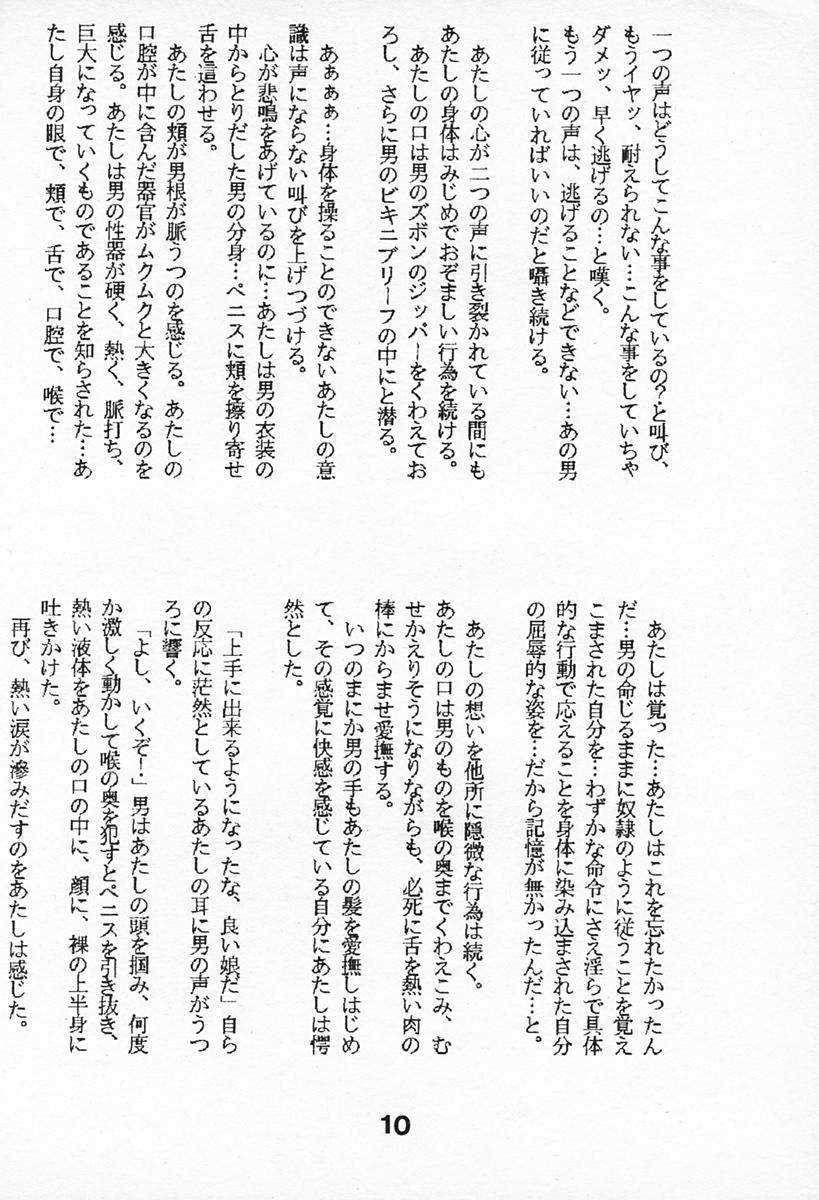 一つの声はどうしてこんな事をしているの？と叫び、
もうイヤッ、耐えられない…こんな事をしていちゃ
ダメッ、早く逃げるの…と嘆く。
もう一つの声は、逃げることなどできない…あの男
に従っていればいいのだと囁き続ける。
あたしの心が二つの声に引き裂かれている間にも
あたしの身体はみじめでおぞましい行為を続ける。
あたしの口は男のズボンのジッパーをくわえてお
ろし、さらに男のビキニブリーフの中にと潜る。
あぁぁぁ…身体を操ることのできないあたしの意
識は声にならない叫びを上げつづける。
心が悲鳴をあげているのに…あたしは男の衣装の
中からとりだした男の分身…ペニスに頬を擦り寄せ
舌を這わせる。
あたしの頬が男根が脈うつのを感じる。あたしの
口腔が中に含んだ器官がムクムクと大きくなるのを
感じる。あたしは男の性器が硬く、熱く、脈打ち、
巨大になっていくものであることを知らされた…あ
たし自身の眼で、頬で、舌で、口腔で、喉で…
あたしは覚った…あたしはこれを忘れたかったん
だ…男の命じるままに奴隷のように従うことを覚え
こまされた自分を…わずかな命令にさえ淫らで具体
的な行動で応えることを身体に染み込まされた自分
の屈辱的な姿を…だから記憶が無かったんだ…と。
あたしの想いを他所に隠微な行為は続く。
あたしの口は男のものを喉の奥までくわえこみ、む
せかえりそうになりながらも、必死に舌を熱い肉の
棒にからませ愛撫する。
いつのまにか男の手もあたしの髪を愛撫しはじめ
て、その感覚に快感を感じている自分にあたしは愕
然とした。
「上手に出来るようになったな、良い娘だ」自ら
の反応に茫然としているあたしの耳に男の声がうつ
ろに響く。
「よし、いくぞ！」男はあたしの頭を掴み、何度
か激しく動かして喉の奥を犯すとペニスを引き抜き、
熱い液体をあたしの口の中に、顔に、裸の上半身に
吐きかけた。
再び、熱い涙が滲みだすのをあたしは感じた。
10